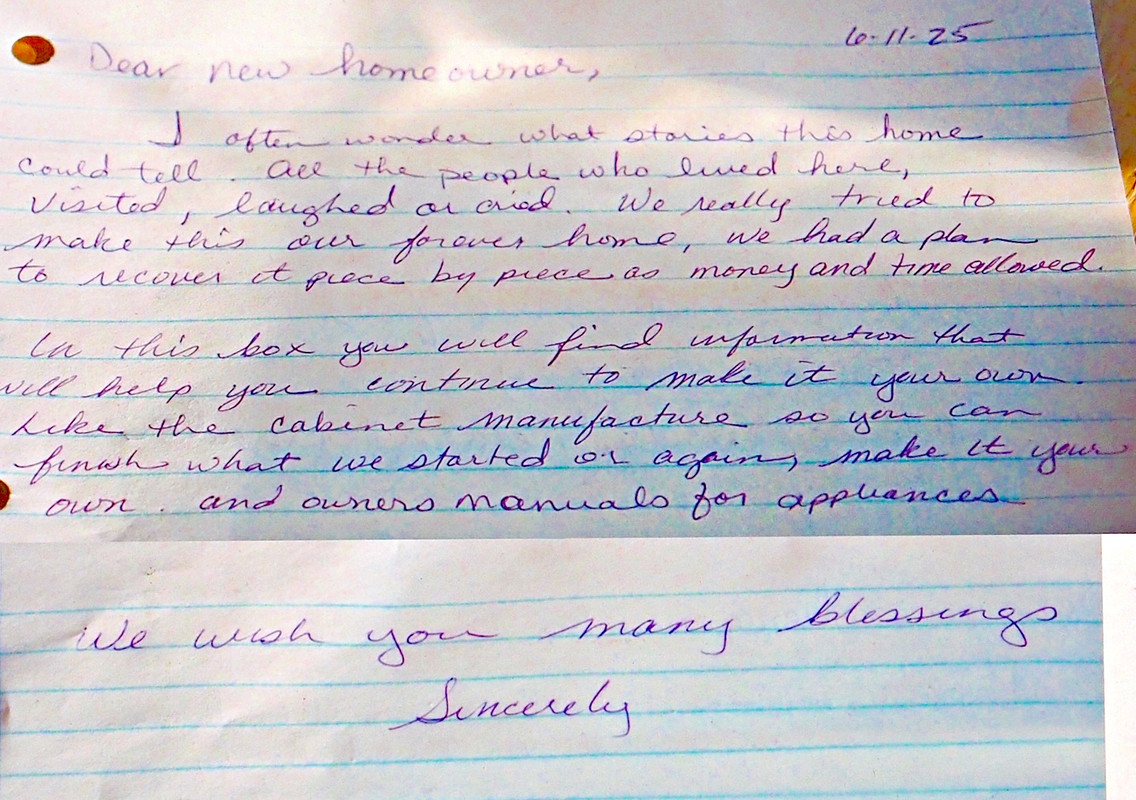 6-11-25
Dear new homeowner,
I often wonder what stories this home
could tell. All the people who lived here,
visited, laughed or cried. We really tried to
make this our forever home, we had a plan
to recover it piece by piece as money and time allowed.
In this box you will find information that
will help you continue to make it your own.
Like the cabinet manufacture so you can
finish what we started or again, make it your
own. and owners manuals for appliances
We wish you many blessings
Sincerely